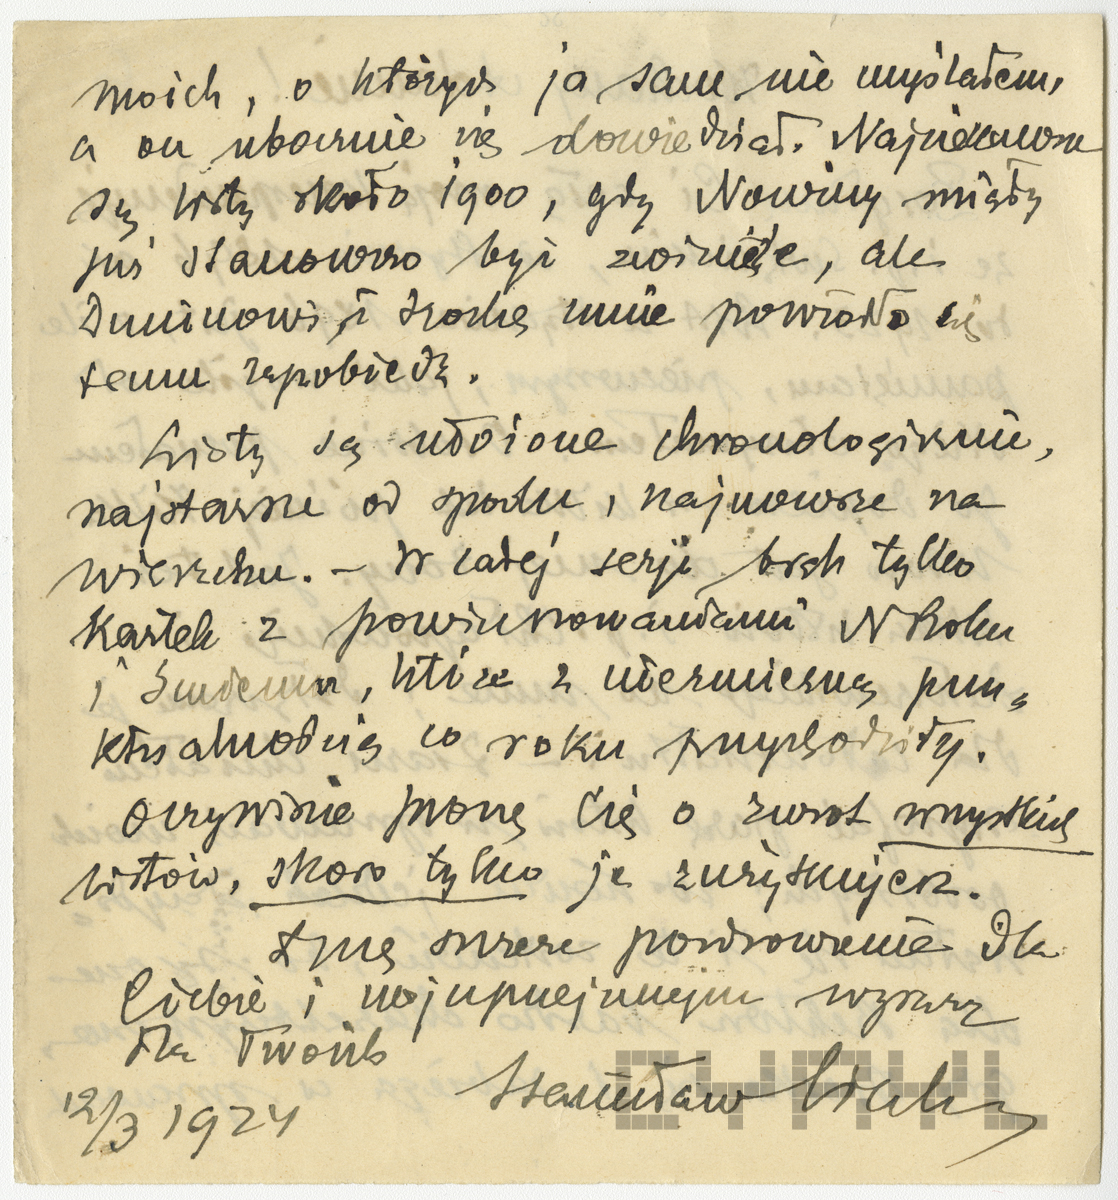 moich, o których ja sam nie myślałem,
a on ubocznie się dowiedział. Najciekawsze
są listy około 1900, gdy Nowiny miały
już stanowczo być zwinięte, ale
Duninowi i trochę mnie powiodło się
temu zapobiedz.
Listy są ułożone chronologicznie,
najstarsze od spodu, najnowsze na
wierzchu. – W całej serji brak tylko
kartek z powinszowaniami N Roku
i, które z niezmierną pun„
ktualnością co roku przychodziły.
Oczywiście proszę Cię o zwrot wszystkich
listów, skoro tylko je zużytkujesz.
Łączę szczere pozdrowienie dla
Ciebie i najuprzejmiejsze wyrazy
dla Twoich
Stanisław
12/3 1924